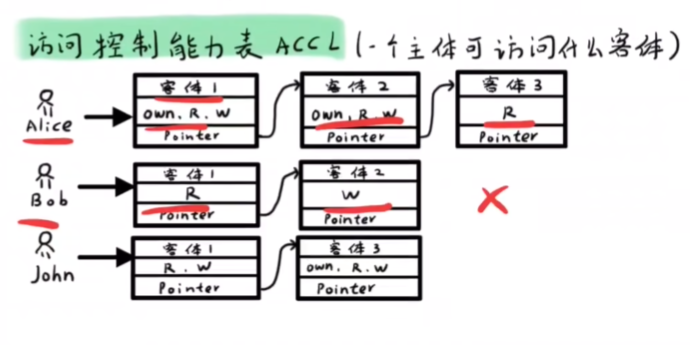 访问控制能力表 ACCL (一个主体可访问什么客体)
Alice
客体1
own, R, W
Pointer
客体2
own, R, W
Pointer
客体3
R
Pointer
Bob
客体1
R
Pointer
客体2
W
Pointer
John
客体1
R, W
Pointer
客体3
own, R, W
Pointer